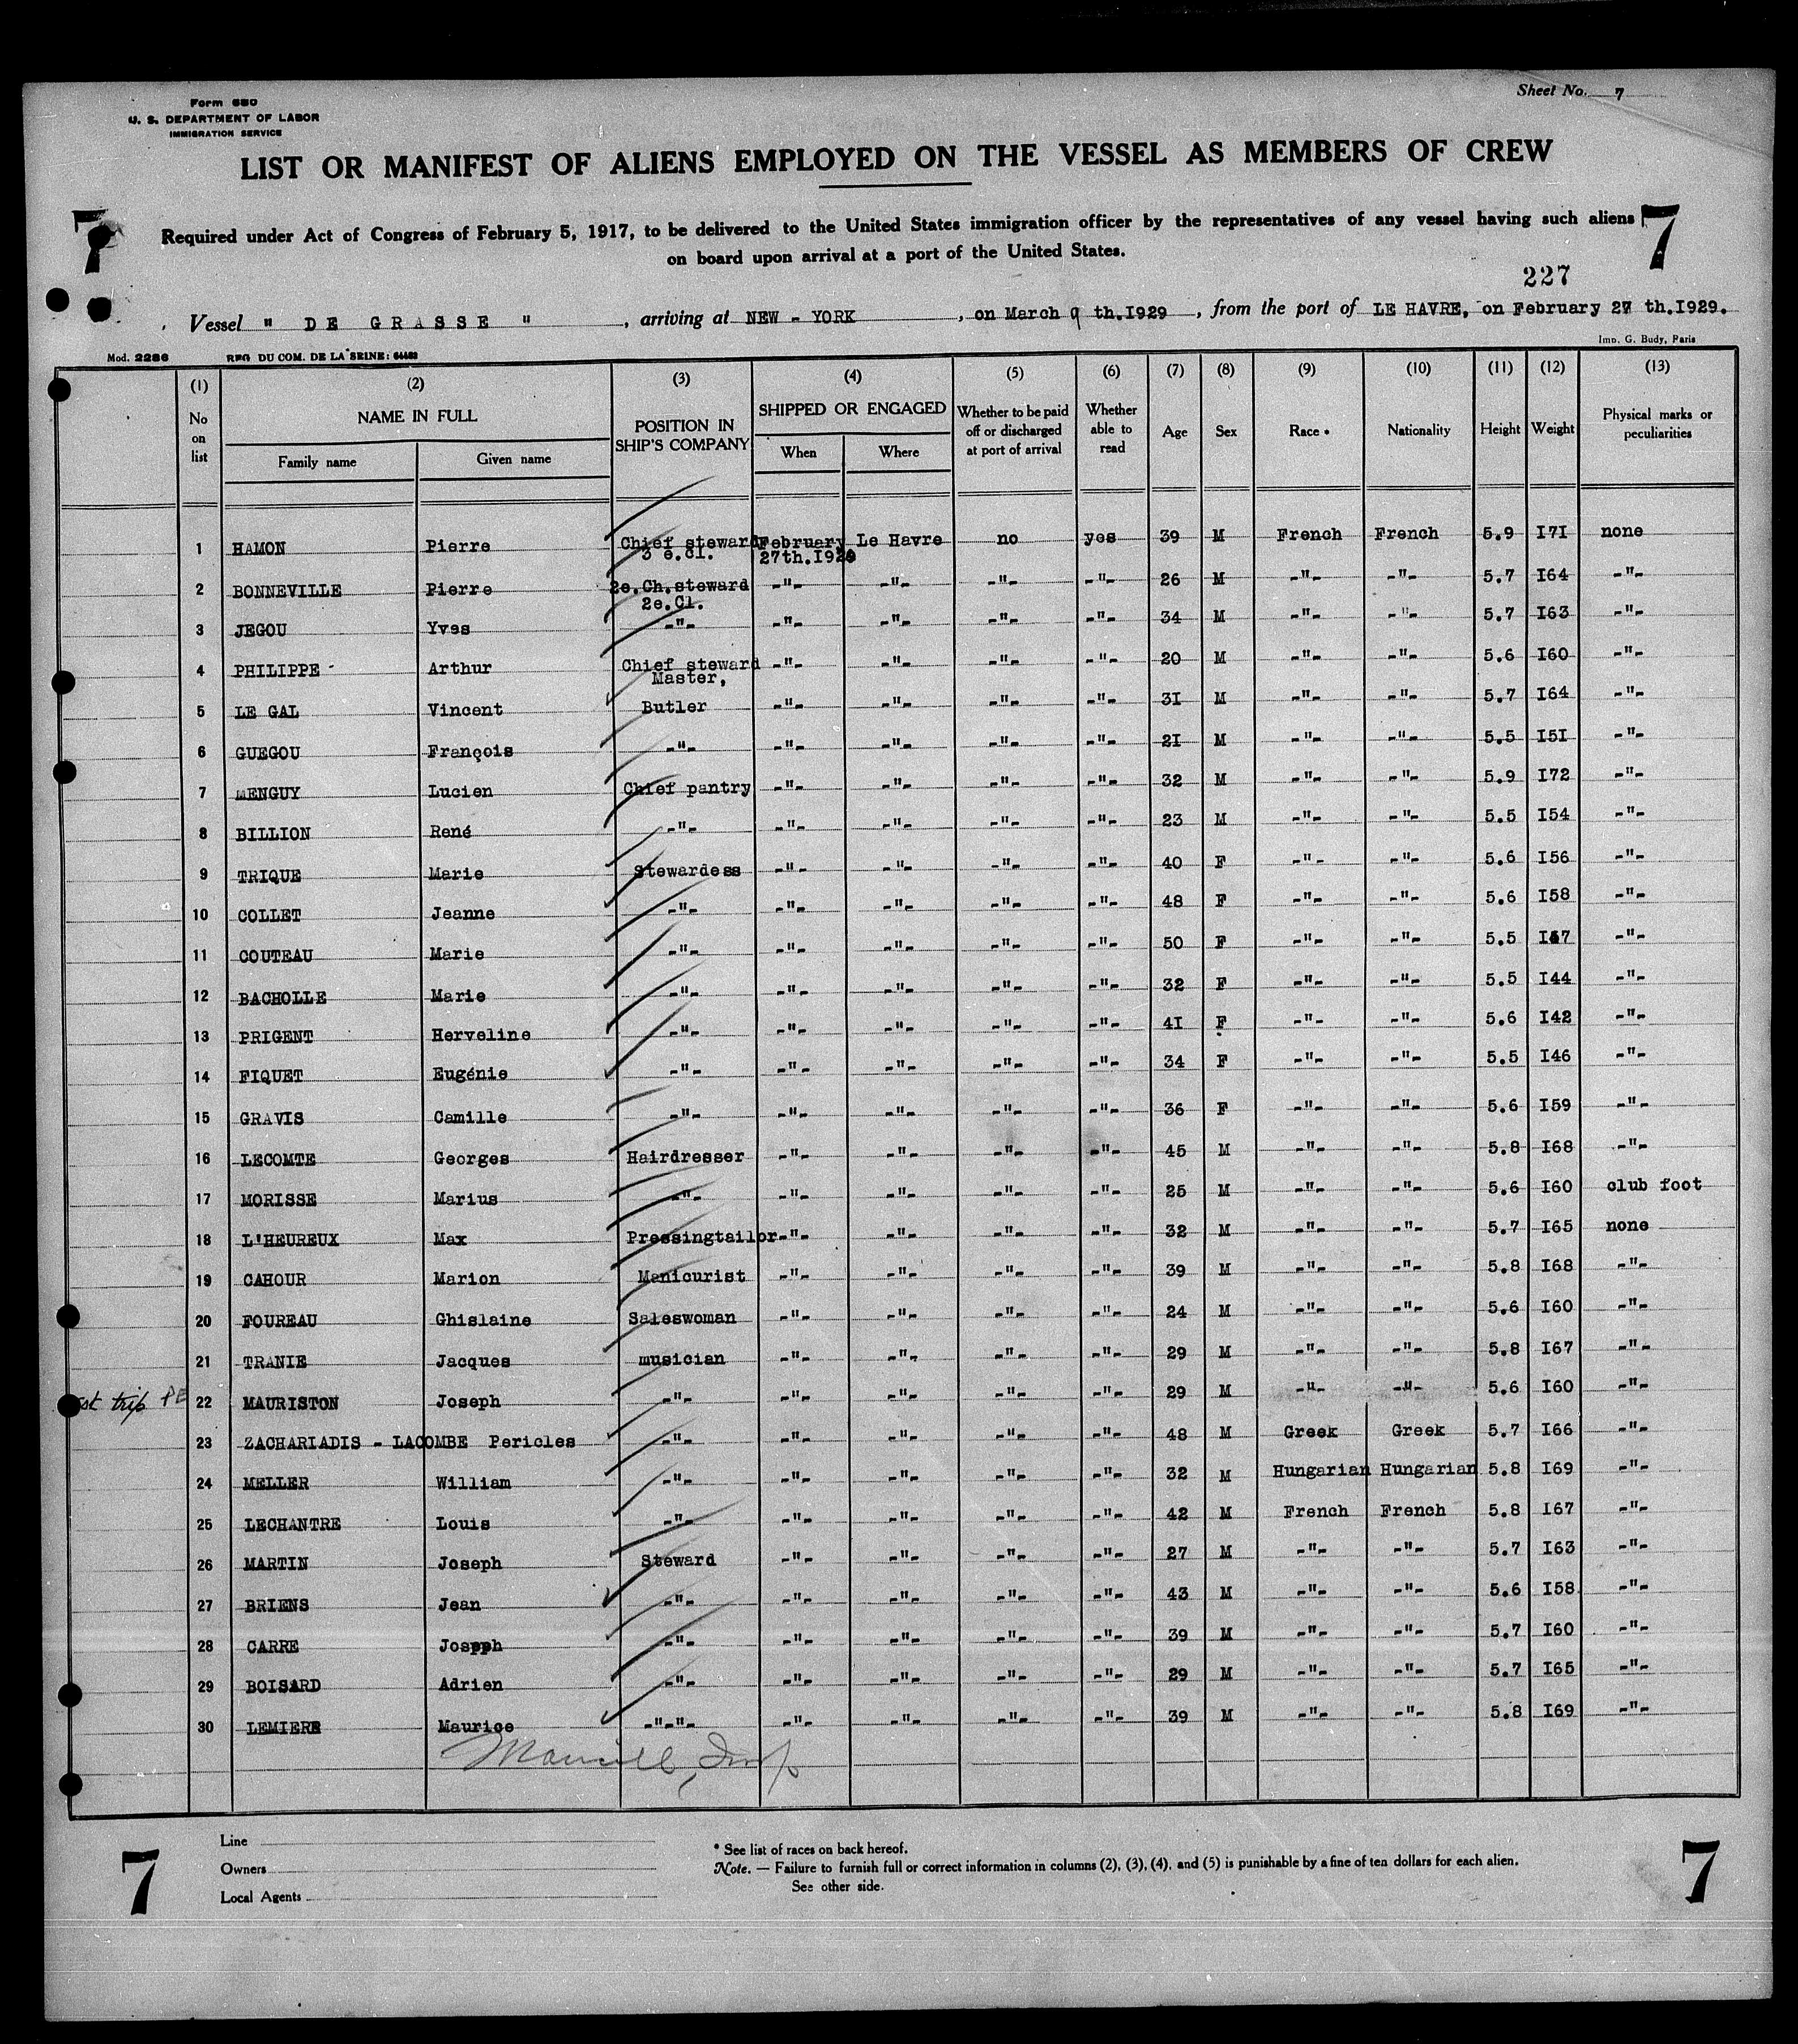 Form 680
U. S. DEPARTMENT OF LABOR
IMMIGRATION SERVICE
Sheet No. 7
LIST OR MANIFEST OF ALIENS EMPLOYED ON THE VESSEL AS MEMBERS OF CREW
7 7
Required under Act of Congress of February 5, 1917, to be delivered to the United States immigration officer by the representatives of any vessel having such aliens
on board upon arrival at a port of the United States.
227
Vessel " DE GRASSE " , arriving at NEW - YORK , on March 9 th.I929 , from the port of LE HAVRE, on February 27 th.I929.
Mod. 2286 REG DU COM. DE LA SEINE: Imp. G. Budy, Paris
(1) (2) (3) (4) (5) (6) (7) (8) (9) (10) (11) (12) (13)
No on list NAME IN FULL POSITION IN SHIP'S COMPANY SHIPPED OR ENGAGED Whether to be paid off or discharged at port of arrival Whether able to read Age Sex Race • Nationality Height Weight Physical marks or peculiarities
Family name Given name When Where
1 HAMON Pierre Chief steward 3 e.Cl. February 27th.I929 Le Havre no yes 39 M French French 5.9 I7I none
2 BONNEVILLE Pierre 2e.Ch.steward 2e.Cl. -"- -"- -"- -"- 26 M -"- -"- 5.7 I64 -"-
3 JEGOU Yves -"- -"- -"- -"- -"- 34 M -"- -"- 5.7 I63 -"-
4 PHILIPPE - Arthur Chief steward Master, -"- -"- -"- -"- 20 M -"- -"- 5.6 I60 -"-
5 LE GAL Vincent Butler -"- -"- -"- -"- 3I M -"- -"- 5.7 I64 -"-
6 GUEGOU François -"- -"- -"- -"- -"- 2I M -"- -"- 5.5 I5I -"-
7 MENGUY Lucien Chief pantry -"- -"- -"- -"- 32 M -"- -"- 5.9 I72 -"-
8 BILLION René -"- -"- -"- -"- -"- 23 M -"- -"- 5.5 I54 -"-
9 TRIQUE Marie Stewardess -"- -"- -"- -"- 40 F -"- -"- 5.6 I56 -"-
10 COLLET Jeanne -"- -"- -"- -"- -"- 48 F -"- -"- 5.6 I58 -"-
11 COUTEAU Marie -"- -"- -"- -"- -"- 50 F -"- -"- 5.5 -"-
12 BACHOLLE Marie -"- -"- -"- -"- -"- 32 F -"- -"- 5.5 I44 -"-
13 PRIGENT Herveline -"- -"- -"- -"- -"- 4I F -"- -"- 5.6 I42 -"-
14 FIQUET Eugénie -"- -"- -"- -"- -"- 34 F -"- -"- 5.5 I46 -"-
15 GRAVIS Camille -"- -"- -"- -"- -"- 36 F -"- -"- 5.6 I59 -"-
16 LECOMTE Georges Hairdresser -"- -"- -"- -"- 45 M -"- -"- 5.8 I68 -"-
17 MORISSE Marius -"- -"- -"- -"- -"- 25 M -"- -"- 5.6 I60 club foot
18 L'HEUREUX Max Pressingtailor -"- -"- -"- -"- 32 M -"- -"- 5.7 I65 none
19 CAHOUR Marion Manicurist -"- -"- -"- -"- 39 M -"- -"- 5.8 I68 -"-
20 FOUREAU Ghislaine Saleswoman -"- -"- -"- -"- 24 M -"- -"- 5.6 I60 -"-
21 TRANIE Jacques musician -"- -"- -"- -"- 29 M -"- -"- 5.8 I67 -"-
trip 22 MAURISTON Joseph -"- -"- -"- -"- -"- 29 M -"- -"- 5.6 I60 -"-
23 ZACHARIADIS - LACOMBE Pericles -"- -"- -"- -"- -"- 48 M Greek Greek 5.7 I66 -"-
24 MELLER William -"- -"- -"- -"- -"- 32 M Hungarian Hungarian 5.8 I69 -"-
25 LECHANTRE Louis -"- -"- -"- -"- -"- 42 M French French 5.8 I67 -"-
26 MARTIN Joseph Steward -"- -"- -"- -"- 27 M -"- -"- 5.7 I63 -"-
27 BRIENS Jean -"- -"- -"- -"- -"- 43 M -"- -"- 5.6 I58 -"-
28 CARRE Jospph -"- -"- -"- -"- -"- 39 M -"- -"- 5.7 I60 -"-
29 BOISARD Adrien -"- -"- -"- -"- -"- 29 M -"- -"- 5.7 I65 -"-
30 LEMIERE Maurice -"-"- -"- -"- -"- -"- 39 M -"- -"- 5.8 I69 -"-
Line
Owners
Local Agents
* See list of races on back hereof.
Note. — Failure to furnish full or correct information in columns (2), (3), (4), and (5) is punishable by a fine of ten dollars for each alien.
See other side.
7 7